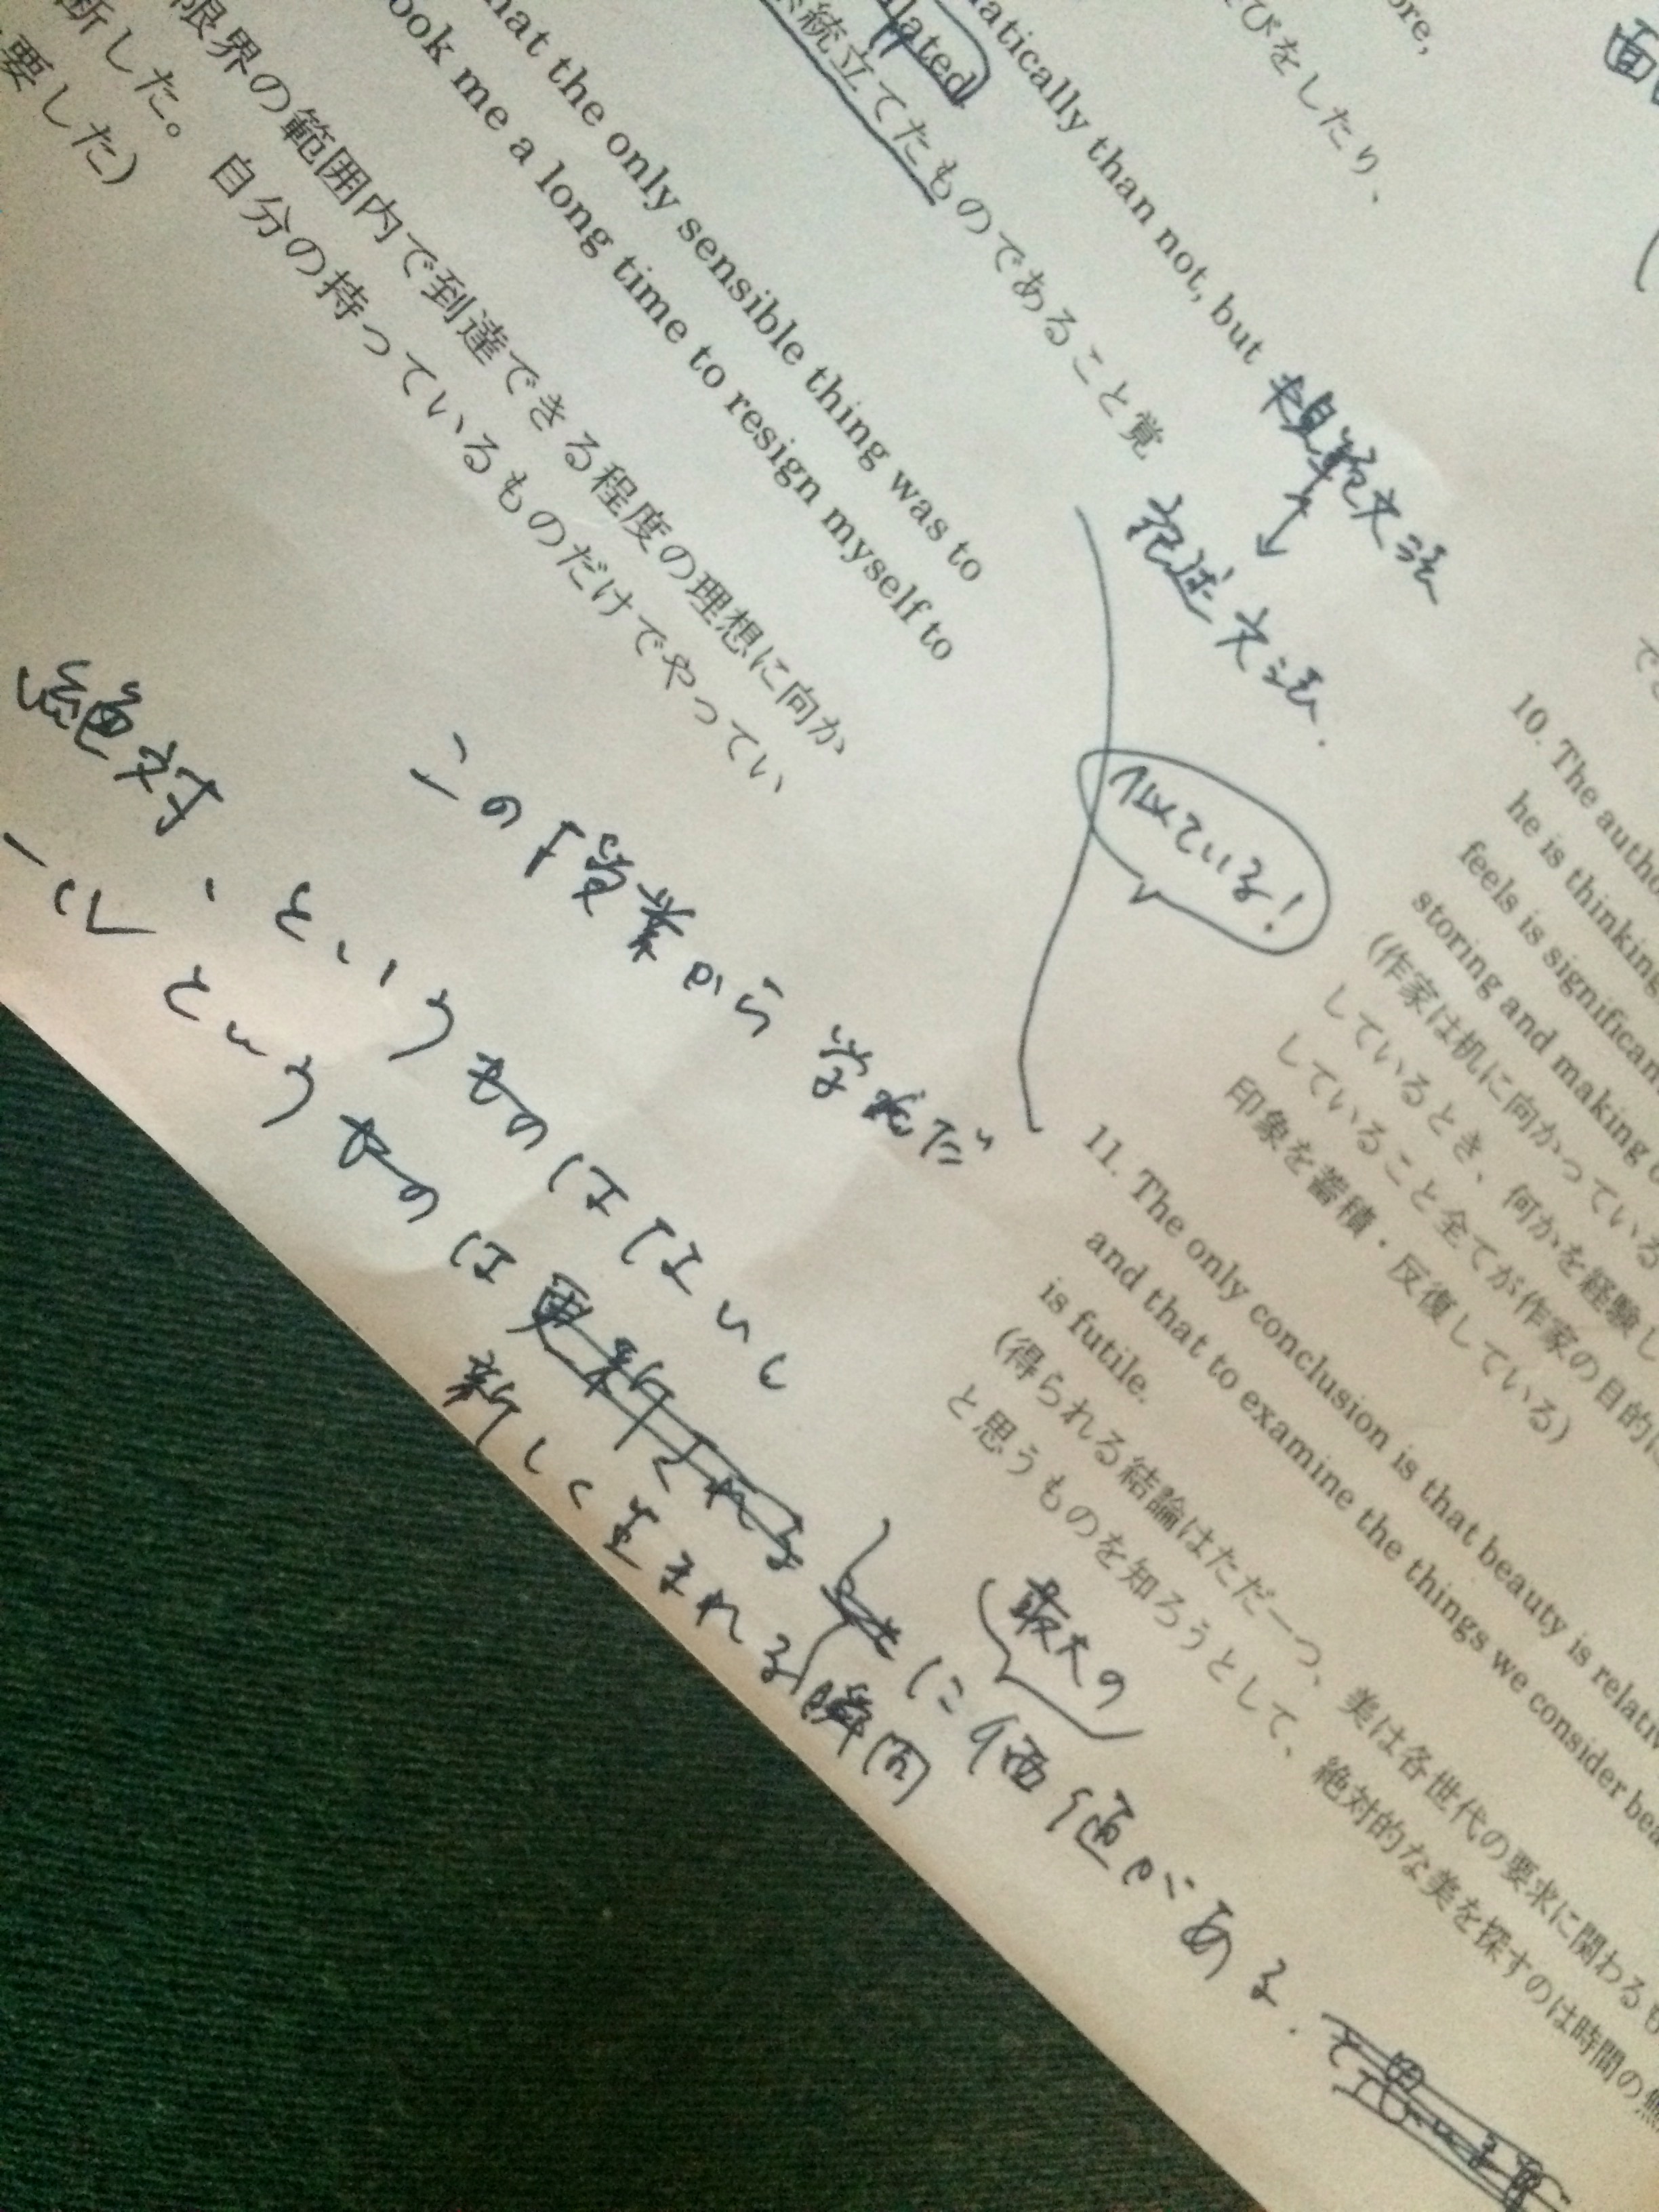 ore,
びをしたり、
atically than not, but
lated
統立てたものであること覚
規範文法
↓
記述文法.
hat the only sensible thing was to
ook me a long time to resign myself to
限界の範囲内で到達できる程度の理想に向か
断した。自分の持っているものだけでやってい
要した)
似ている!
10. The autho
he is thinking
feels is significan
storing and making
(作家は机に向かっている
しているとき、何かを経験し
していること全てが作家の目的に
印象を蓄積・反復している)
11. The only conclusion is that beauty is relativ
and that to examine the things we consider bea
is futile.
(得られる結論はただ一つ、美は各世代の要求に関わるも
と思うものを知ろうとして、絶対的な美を探すのは時間の無
この授業から学んだ
絶対、というものはないし
ールというものは更新される
新しく生まれる瞬間
最大の
に価値がある.
と思います